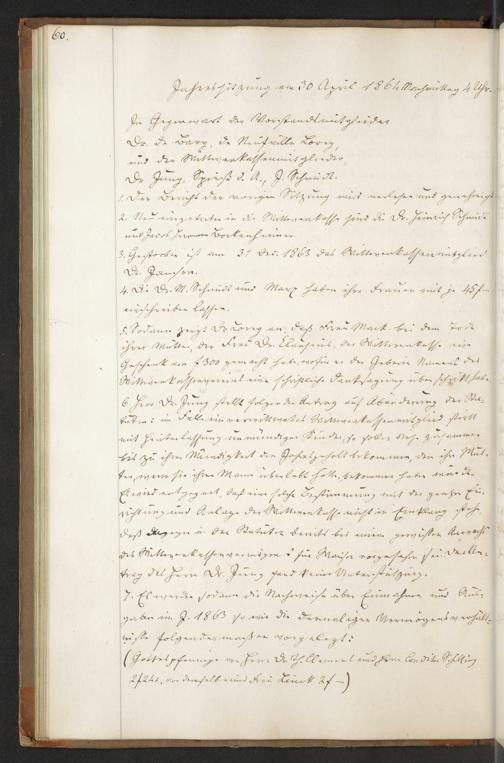 60.
Jahressitzung am 30 April 1864 Nachmittag 4 Uhr.
In Gegenwart der Vorstandsmitglieder
Dr. de Bary, de Neufville, Lorey,
und der Wittwenkassenmitglieder,
Dr Jung, Spieß d. A., J. Schmidt.
1. Der Bericht der vorigen Sitzung wird verlesen und genehmigt
2. Neu eingetreten in die Wittwenkasse sind die Dr. Heinrich Schmidt
und Jacob Herman Bockenheimer.
3. Gestorben ist am 31 Dec. 1863 das Wittwenkassenmitglied
Dr. Jansen.
4. Die Dr. M. Schmidt und Marx haben ihre Frauen mit je 45f
einschreiben lassen.
5. Sodann zeigt Dr Lorey an, daß Frau Mack bei dem Tode
ihrer Mutter, der Frau Dr. , der Wittwenkasse ein
Geschenk von f 300 gemacht habe, wofür er der Geberin Namens des
Wittwenkassenvereins eine schriftliche Danksagung überschickt habe.
6. Herr Dr. Jung stellt folgenden Antrag auf Abänderung der Sta-
tuten: im Falle ein verwittwetes Wittwenkassenmitglied stirbt
mit Hinterlassung unmündiger Kinder, so sollen diese zusammen
bis zu ihrer Mündigkeit den Jahrgehalt bekommen, den ihre Mut-
ter, wenn sie ihren Mann überlebt hätte, bekommen haben würde.
Es wird entgegnet, daß eine solche Bestimmung mit der ganzen Ein-
richtung und Anlage der Wittwenkasse nicht in Einklang stehe,
daß dagegen in den Statuten bereits bei einem gewissen Anwachs
des Wittwenkassenvermögens für Waisen vorgesehen sei. Der An-
trag des Herrn Dr. Jung fand keine Unterstützung.
7. Es werden sodann die Nachweise über Einnahme und Aus-
gaben im J. 1863 so wie die dermaligen Vermögensverhält-
nisse folgendermaßen vorgelegt:
(Gottespfennige von Herrn De und Herrn Conditor Schilling
2f 24x, von demselben und Frau Linck 2f —)